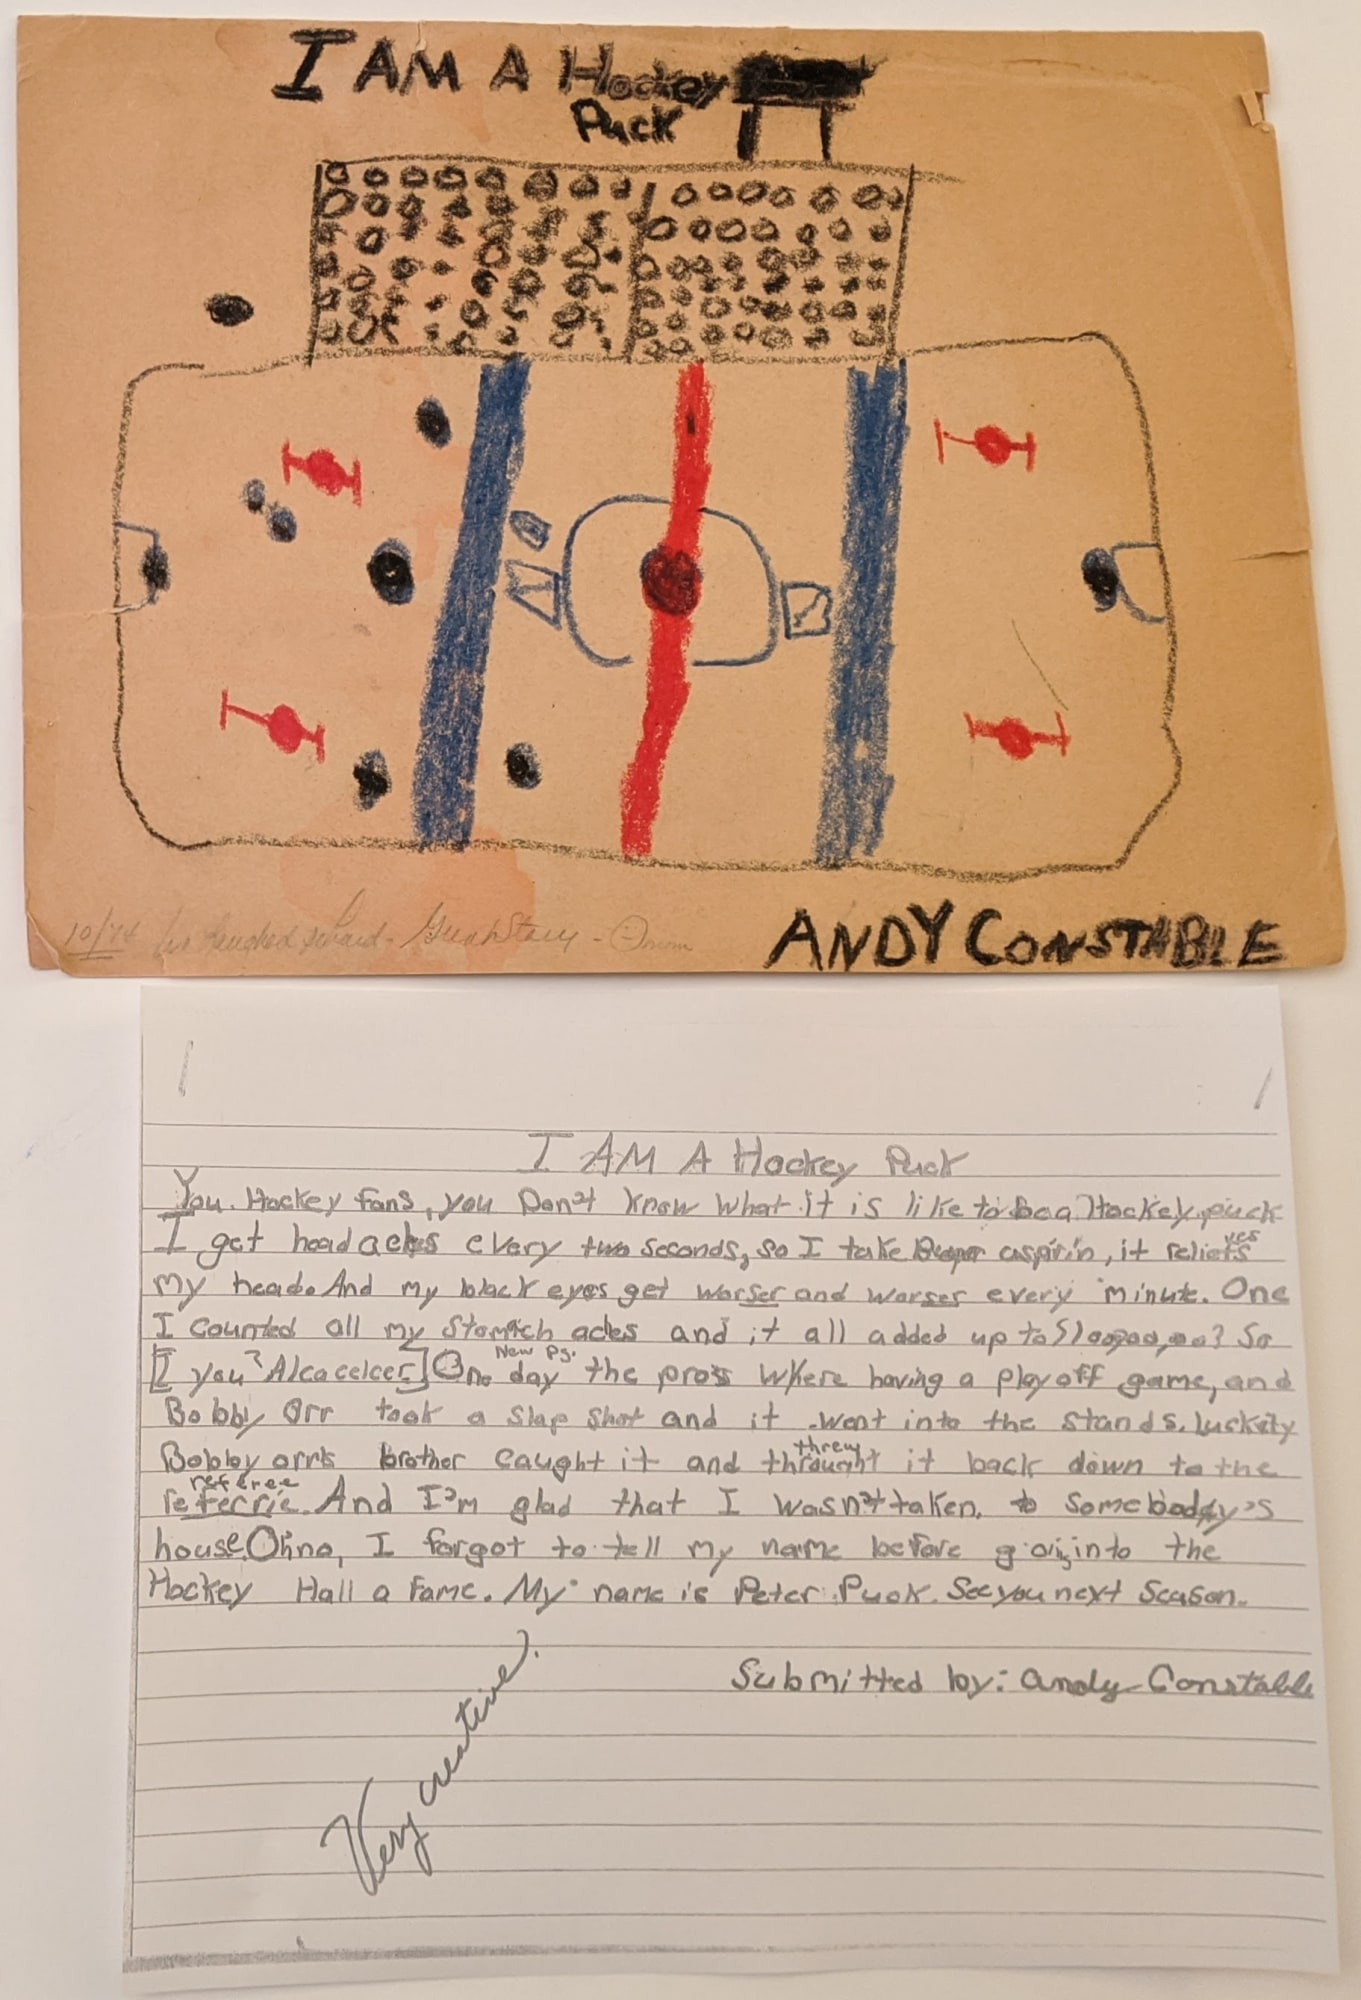 I AM A Hockey
Puck
10/74 We laughed
ANDY CONSTABLE
I AM A Hockey Puck
You. Hockey fans, you Don't know what it is like to be a Hockey puck
I get headaches every two seconds, so I take aspirin, it reliefs
ves
my head. And my black eyes get worser and worser every minute. One
I counted all my Stomach aches and it all added up to So
[I you? Alcacelcer.] One day the pros where having a playoff game, and
New Pg.
Bobby Orr took a slap shot and it went into the stands. luckely
Bobby orr's brother caught it and throught it back down to the
threw
referee
referrie. And I'm glad that I wasn't taken to somebody's
house. Ohno, I forgot to tell my name before going into the
Hockey Hall a Fame. My name is Peter Puck. See you next Season.
Submitted by: Andy Constable
Very creative.